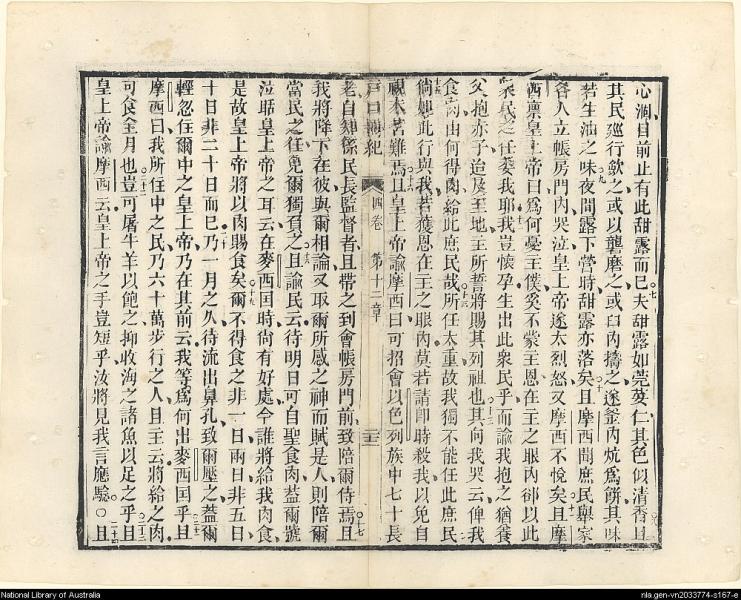 心涸目前止有此甜露而已夫甜露如莞荽仁其色似清香且
其民廵行歛之或以礱磨之或臼內搗之遂釜內炕爲餅其味
若生油之味夜間露下營時甜露亦落矣且摩西聞庶民舉家
各人立帳房門內哭泣皇上帝遂大烈怒又摩西不悅矣且摩
西禀皇上帝曰爲何憂主僕奚不蒙主恩在主之眼內卻以此
衆民之任委我耶我豈懷孕生出此衆民乎而諭我抱之猶養
父抱赤子迨及至地主所誓將賜其列祖也其向我哭云俾我
食肉由何得肉給此庶民哉所任太重故我獨不能任此庶民
倘如此行與我若獲恩在主之眼內莫若請卽時殺我以免自
視本苦難焉且皇上帝諭摩西曰可招會以色列族中七十長
戶口冊紀 四卷 第十一章 二十二
老自知係民長監督者且帶之到會帳房門前致陪爾侍焉且
我將降下在彼與爾相論又取爾所感之神而賦是人則陪爾
當民之任免爾獨負之且諭民云待明日可自聖食肉蓋爾號
泣聒皇上帝之耳云在麥西国時尙有好處今誰將給我肉食
是故皇上帝將以肉賜食矣爾不得食之非一日兩日非五日
十日非二十日而已乃一月之久待流出鼻孔致爾壓之蓋爾
輕忽住爾中之皇上帝乃在其前云我等爲何出麥西国乎且
摩西曰我所住中之民乃六十萬步行之人且主云將給之肉
可食全月也豈可屠牛羊以飽之抑收海之諸魚以足之乎且
皇上帝諭摩西云皇上帝之手豈短乎汝將見我言應驗○且
National Library of Australia
nla.gen-vn2033774-s167-e